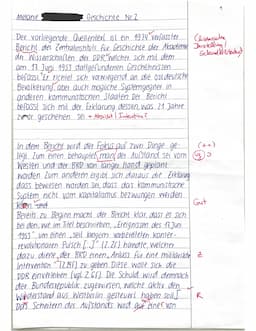 Melanie Geschichte Nr. 2
1
Der vorliegende Quellentext ist ein 1974 verfasster
Bericht des Zentralinstituts für Geschichte der Akademie
der Wissenschaften der DDR, welcher sich mit dem
am 17. Juni 1953 stattgefundenen Geschehnissen
befasst. Er richtet sich vorwiegend an die ostdeutsche
Bevölkerung, aber auch mögliche Systemgegner in
anderen kommunistischen Staaten. Der Bericht
befasst sich mit der Erklärung dessen, was 21 Jahre
zuvor geschehen sei. + Absicht / Intention?
In dem Bericht wird der Fokus auf zwei Dinge ge-
legt. Zum einen behauptet man, der Aufstand sei vom
Westen und der BRD von langer Hand geplant
worden. Zum anderen ergibt sich daraus die Erklärung,
dass bewiesen worden sei, dass das kommunistische
System nicht vom Kapitalismus bezwungen werden
kann und
Bereits zu Beginn macht der Bericht klar, dass es sich
bei den, wie im Titel beschrieben, „Ereignissen des 17. Juni
1953", um einen „seit langem vorbereiteten konter-
revolutionären Putsch [...]" (Z. 2f.) handelte, welcher
dazu diene, der BRD einen „Anlass für eine militärische
Intervention" (Z. 5f.) zu geben. Diese wolle sich die
DDR einverleiben (vgl. Z. 6f.). Die Schuld wird demnach
der Bundesrepublik zugewiesen, welche aktiv den
Widerstand aus Westberlin gesteuert haben soll.
Das Scheitern des Aufstands wird auf eine von
(++)
Gut
Z
R